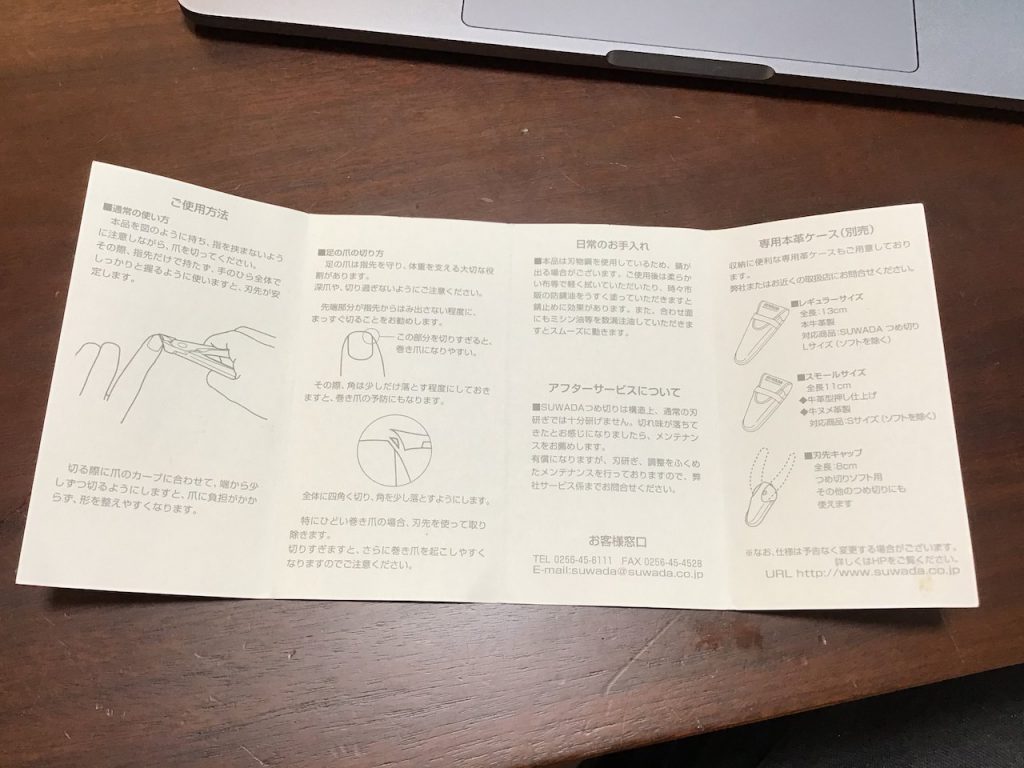 ご使用方法
■通常の使い方
本品を図のように持ち、指を挟まないよう
に注意しながら、爪を切ってください。
その際、指先だけで持たず、手のひら全体で
しっかりと握るように使いますと、刃先が安
定します。
切る際に爪のカーブに合わせて、端から少
しずつ切るようにしますと、爪に負担がかか
らず、形を整えやすくなります。
■足の爪の切り方
足の爪は指先を守り、体重を支える大切な役
割があります。
深爪や、切り過ぎないようにご注意ください。
先端部分が指先からはみ出さない程度に、
まっすぐ切ることをお勧めします。
この部分を切りすぎると、
巻き爪になりやすい。
その際、角は少しだけ落とす程度にしておき
ますと、巻き爪の予防にもなります。
全体に四角く切り、角を少し落とすようにします。
特にひどい巻き爪の場合、刃先を使って取り
除きます。
切りすぎますと、さらに巻き爪を起こしやすく
なりますのでご注意ください。
日常のお手入れ
■本品は刃物鋼を使用しているため、錆が
出る場合がございます。ご使用後は柔らか
い布等で軽く拭いていただいたり、時々市
販の防錆油をうすく塗っていただきますと
錆止めに効果があります。また、合わせ面
にもミシン油等を数滴注油していただきま
すとスムーズに動きます。
アフターサービスについて
■SUWADAつめ切りは構造上、通常の刃
研ぎでは十分研げません。切れ味が落ちて
きたとお感じになりましたら、メンテナン
スをお薦めします。
有償になりますが、刃研ぎ、調整をふくめ
たメンテナンスを行っておりますので、弊
社サービス係までお問合せください。
お客様窓口
TEL 0256-45-6111 FAX 0256-45-4528
E-mail:suwada@suwada.co.jp
専用本革ケース(別売)
収納に便利な専用革ケースもご用意しており
ます。
弊社またはお近くの取扱店にお問合せください。
■レギュラーサイズ
全長:13cm
本牛革製
対応商品:SUWADA つめ切り
Lサイズ(ソフトを除く)
■スモールサイズ
全長11cm
◆牛革型押し仕上げ
◆牛ヌメ革製
対応商品:Sサイズ(ソフトを除く)
■刃先キャップ
全長:8cm
つめ切りソフト用
その他のつめ切りにも
使えます
※なお、仕様は予告なく変更する場合がございます。
詳しくはHPをご覧ください。
URL http://www.suwada.co.jp